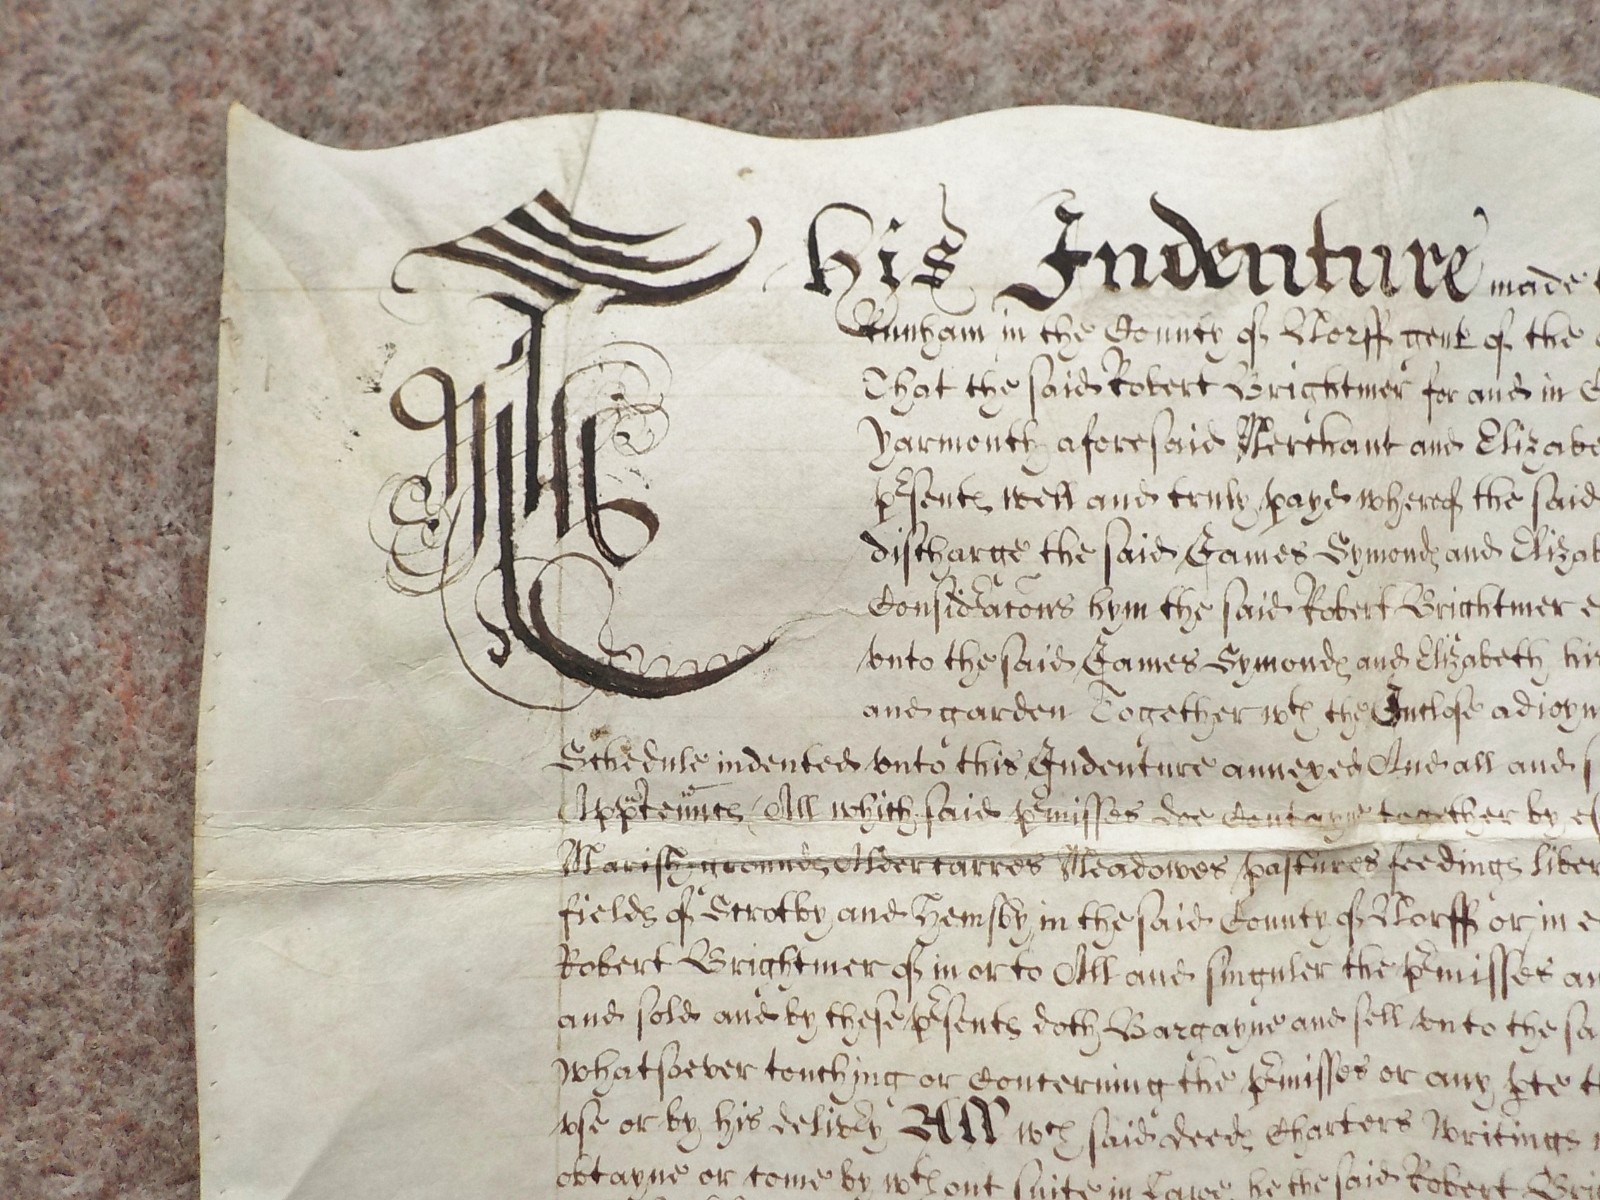 This Indenture made
Runham in the County of Norff gent of the
That the said Robert Brightmer for and in
Yarmouth aforesaid Merchant and Elizabe
p̱sents well and truly payd whereof the said
discharge the said James Symonds and Elizab
Considəracons hym the said Robert Brightmer
vnto the said James Symonds and Elizabeth his
and garden Together wth the Inclose adioyn
Schedule indented vnto this Indenture annexed And all and
All which said p̱misses doe Contayne together by
Marish grounds Aldercarres Meadowes pastures feedings liber
fields of Scrotby and Hemsby in the said County of Norff or in
Robert Brightmer of in or to All and singuler the p̱misses an
and sold and by these p̱sents doth Bargayne and sell vnto the sa
whatsoever touching or Concerning the p̱misses or any p̱te
vse or by his delivy All wch said deeds Charters Writings
obtayne or come by wthout suite in Lawe he the said Robert Bri